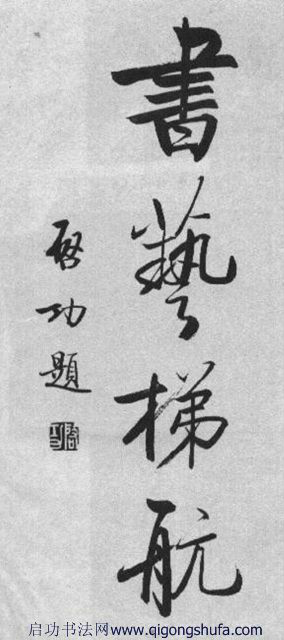 書藝梯航
啓功題
启功书法网www.qigongshufa.com